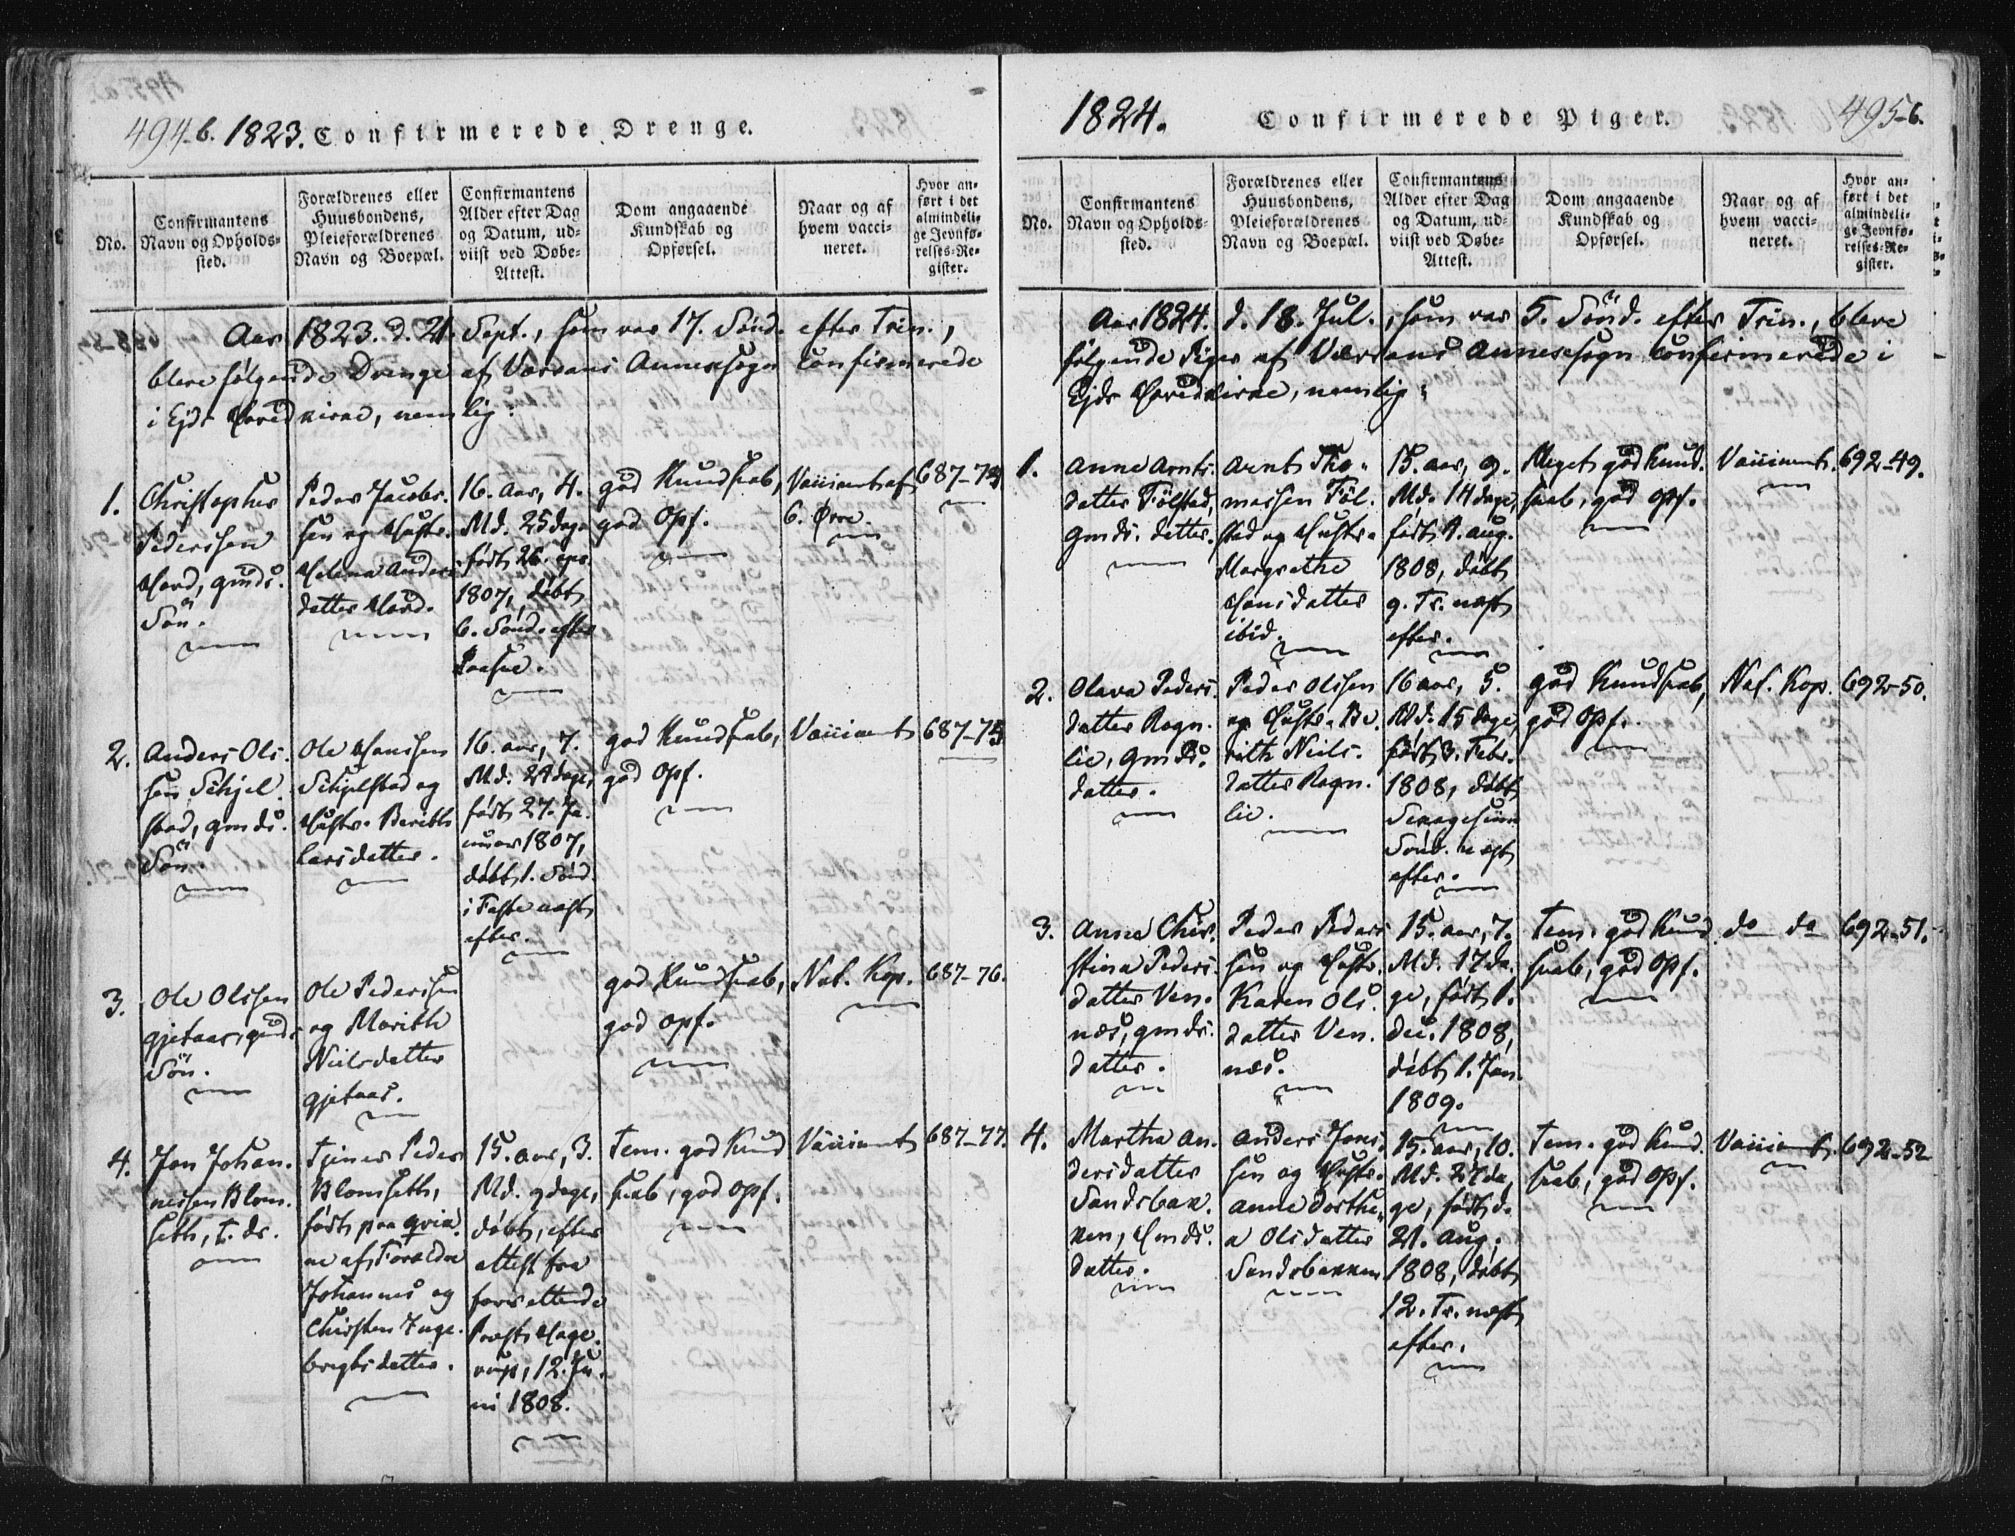 494-b. 1823. Confirmerede Drenge.
No.
Confirmantens
Navn og Opholds-
sted.
Forældrenes eller
Huusbondens,
Pleieforældrenes
Navn og Boepæl.
Confirmantens
Alder efter Dag
og Datum, ud-
viist ved Døbe-
Attest.
Dom angaaende
Kundskab og
Opførsel.
Naar og af
hvem vacci-
neret.
Hvor an-
ført i det
almindeli-
ge Jevnfø-
relses-Re-
gister.
Aar 1823. d. 21. Sept., som var 17. Sönd. efter Trin.,
bleve følgende Drenge af Værdahls Annexsogn confirmerede
i Ejds Hovedkirke, nemlig:
1.
Christopher
Pedersen
Hovd, gmds.
Sön.
Peder Jacobs.
sen og Hustr.
Helena Anders
datter Hovd.
16. aar, 4.
Md. 25 dage
född 26. apr.
1807, döbt
6. Sönd. efter
Paaske.
god Kundskab,
god Opf.
Vaccinert af
C. Ørre.
687-74
2.
Anders Ol.
sen Schjel
stad, gmds.
Sön.
Ole Hansen
Schjelstad og
Hustr. Berith
Larsdatter.
16. aar, 7.
Md. 24 dage,
född 27. Ja.
nuar 1807,
döbt 1. Sönd.
i Faste næst
efter.
god Kundskab,
god Opf.
Vaccinert
687-75
3.
Ole Olsen
gjetaas, gmds
Sön.
Ole Pedersen
og Marith
Nielsdatter
gjetaas.
god Kundskab,
god Opf.
Nat. Kop.
687-76.
4.
Jon Johan.
nessen Blom.
seth, t. dr.
Tjener Peder
Blomseth,
född paa qvia.
ne af Forældre
Johannes og
Christen Inge.
brigtsdatter.
15. aar, 3.
Md. 9 dage,
döbt, efter
attest fra
forrettende
Præst Hage.
rup, 12. Ju.
ni 1808.
Tem. god Kund
skab, god Opf.
Vaccinert
687-77.
1824. Confirmerede Piger. 495-b.
No.
Confirmantens
Navn og Opholds-
sted.
Forældrenes eller
Huusbondens,
Pleieforældrenes
Navn og Boepæl.
Confirmantens
Alder efter Dag
og Datum, ud-
viist ved Døbe-
Attest.
Dom angaaende
Kundskab og
Opførsel.
Naar og af
hvem vacci-
neret.
Hvor an-
ført i det
almindeli-
ge Jevnfø-
relses-Re-
gister.
Aar 1824. d. 18. Jul., som var 5. Sönd. efter Trin., bleve
følgende Piger af Annexsogn confirmerede i
Ejds Hovedkirke, nemlig:
1.
Anne Arnts.
datter Fölstad,
gmds. datter.
Arnt Tho-
massen Föl.
stad og Hustr.
Margrethe
Hansdatter
ibid.
15. aar, 9.
Md. 14 dage,
född 4. aug.
1808, döbt
9. Tr. næst
efter.
Meget god Kund.
skab, god Opf.
Vaccinert.
692-49.
2.
Olava Peders.
datter Rogn.
lie, gmds.
datter.
Peder Olsen
og Hustr. Be
rith Niels.
datter Rogn.
lie.
16 aar, 5.
Md. 15 dage,
född 3. Febr.
1808, döbt
Sexagesima
Sönd. næst
efter.
god Kundskab,
god Opf.
Nat. Kop.
692-50.
3.
Anne Chri.
stina Peders.
datter Ven.
næs, gmds.
datter.
Peder Peders
sen og Hustr.
Karen Ols
datter Ven.
næs.
15. aar, 7.
Md. 17 da.
ge, född 1.
dec. 1808,
döbt 1. Jan.
1809.
Tem. god Kund
skab, god Opf.
do do
692-51.
4.
Martha An.
dersdatter
Sandsbak.
ken, Hmds.
datter.
Anders Jons
sen og Hustr.
Anne Dorthe.
a Olsdatter
Sandsbakken
15. aar, 10.
Md. 27 da,
ge, född d.
21. Aug.
1808, döbt
12. Tr. næst
efter.
Tem. god Kund.
skab, god Opf.
Vaccinert.
692-52